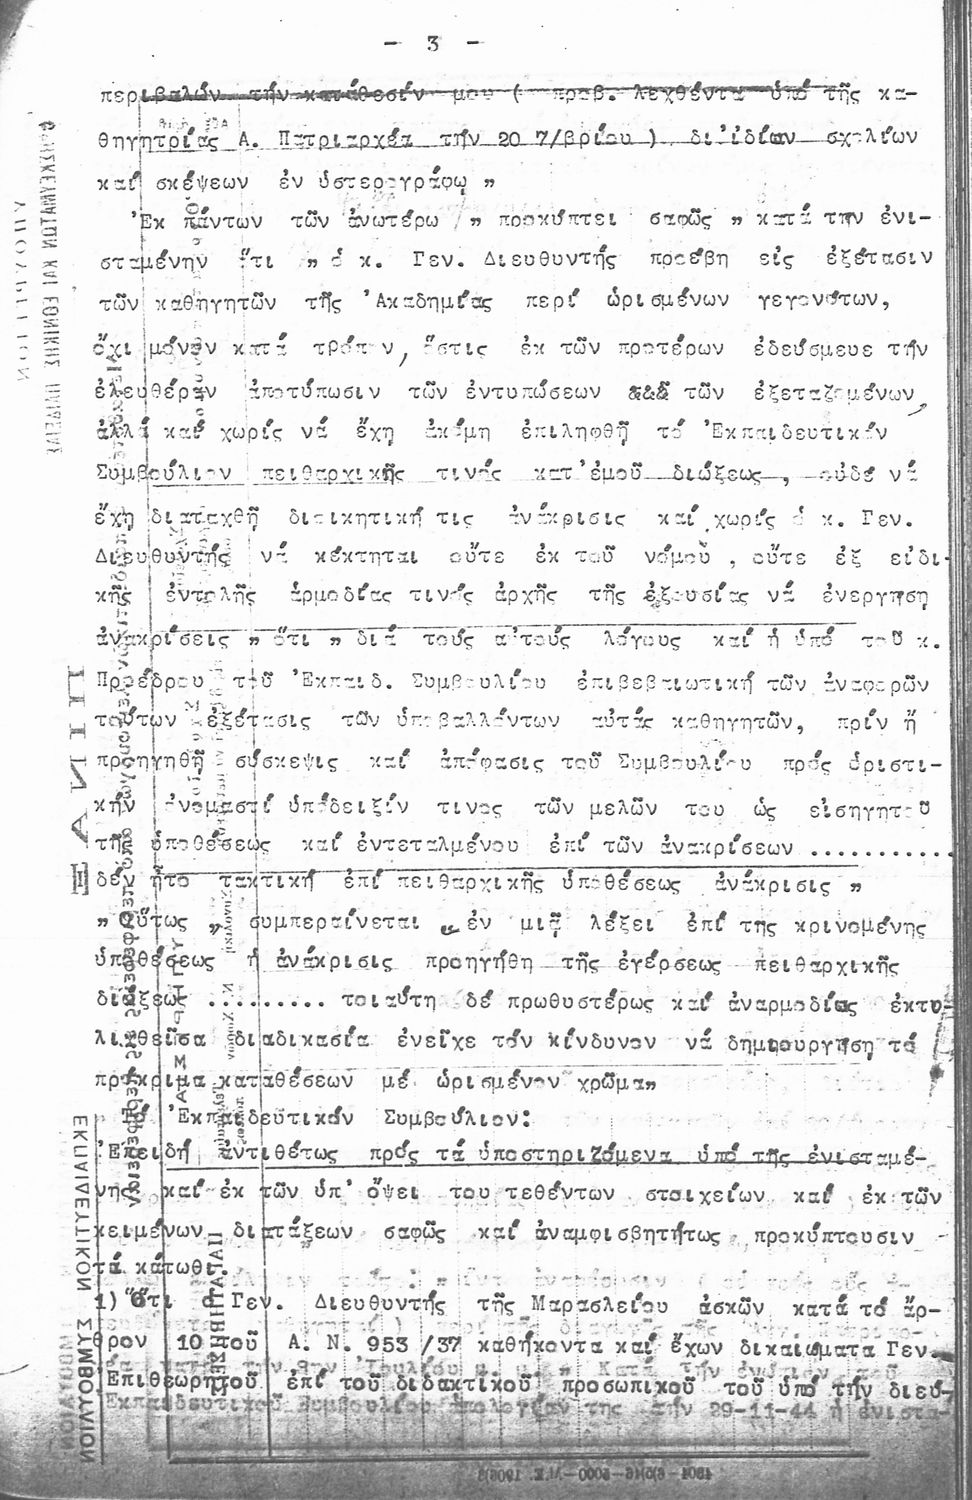 - 3 -
περιβαλών τήν κατάθεσίν μου ( πραβ. λεχθέντα ὑπό τῆς κα-
θηγητρίας Α. Πατριαρχέα τήν 20 7/βρίου ) δι'ἰδίων σχολίων
καί σκέψεων ἐν ὑστερογράφῳ "
Ἐκ πάντων τῶν ἀνωτέρω " προκύπτει σαφῶς " κατά την ἐνι-
σταμένην ὅτι " ὁ κ. Γεν. Διευθυντής προέβη εἰς ἐξέτασιν
τῶν καθηγητῶν τῆς Ἀκαδημίας περί ὡρισμένων γεγονότων,
ὄχι μόνον κατά τρόπον, ὅστις ἐκ τῶν προτέρων ἐδεύσμευε τήν
ἐλευθέραν ἀποτύπωσιν τῶν ἐντυπώσεων τῶν ἐξεταζομένων,
ἀλλά καί χωρίς νά ἔχη ἀκόμη ἐπιληφθῆ τό Ἐκπαιδευτικόν
Συμβούλιον πειθαρχικῆς τινός κατ'ἐμοῦ διώξεως , οὐδέ νά
ἔχη διαταχθῆ διοικητική τις ἀνάκρισις καί χωρίς ὁ κ. Γεν.
Διευθυντής νά κέκτηται οὔτε ἐκ τοῦ νόμου , οὔτε ἐξ εἰδι-
κῆς ἐντολῆς ἁρμοδίας τινός ἀρχῆς τῆς ἐξουσίας νά ἐνεργηση
ἀνακρίσεις " ὅτι " διά τούς αὐτούς λόγους καί ἡ ὑπό τοῦ κ.
Προέδρου τοῦ Ἐκπαιδ. Συμβουλίου ἐπιβεβαιωτική τῶν ἀναφορῶν
τούτων ἐξέτασις τῶν ὑποβαλλόντων αὐτάς καθηγητῶν, πρίν ἤ
προηγηθῆ σύσκεψις καί ἀπόφασις τοῦ Συμβουλίου πρός ὁριστι-
κήν ὀνομαστί ὑπόδειξίν τινος τῶν μελῶν του ὡς εἰσηγητοῦ
τῆς ὑποθέσεως καί ἐντεταλμένου ἐπί τῶν ἀνακρίσεων ...........
δέν ἦτο τακτική ἐπί πειθαρχικῆς ὑποθέσεως ἀνάκρισις "
" Οὕτως " συμπεραίνεται " ἐν μιᾷ λέξει ἐπί της κρινομένης
ὑποθέσεως ἡ ἀνάκρισις προηγήθη τῆς ἐγέρσεως πειθαρχικῆς
διώξεως ......... τοιαύτη δέ πρωθυστέρως καί ἀναρμοδίως ἐκτυ-
λιχθεῖσα διαδικασία ἐνεῖχε τόν κίνδυνον νά δημιουργήση τό
πρόκριμα καταθέσεων μέ ὡρισμένον χρῶμα"
Τό Ἐκπαιδευτικόν Συμβούλιον:
Ἐπειδή ἀντιθέτως πρός τά ὑποστηριζόμενα ὑπό τῆς ἐνισταμέ-
νης καί ἐκ τῶν ὑπ' ὄψει του τεθέντων στοιχείων καί ἐκ τῶν
κειμένων διατάξεων σαφῶς καί ἀναμφισβητήτως προκύπτουσιν
τά κάτωθι.
1) Ὅτι ὁ Γεν. Διευθυντής τῆς Μαρασλείου ἀσκῶν κατά τό ἄρ-
θρον 10 τοῦ Α. Ν. 953 /37 καθήκοντα καί ἔχων δικαιώματα Γεν.
Ἐπιθεωρητοῦ ἐπί τοῦ διδακτικοῦ προσωπικοῦ τοῦ ὑπό τήν διευ-
ΥΠΟΥΡΓΕΙΟΝ
ΘΡΗΣΚΕΥΜΑΤΩΝ ΚΑΙ ΕΘΝΙΚΗΣ ΠΑΙΔΕΙΑΣ
ΠΙΝΑΞ
ΕΚΠΑΙΔΕΥΤΙΚΟΝ ΣΥΜΒΟΥΛΙΟΝ